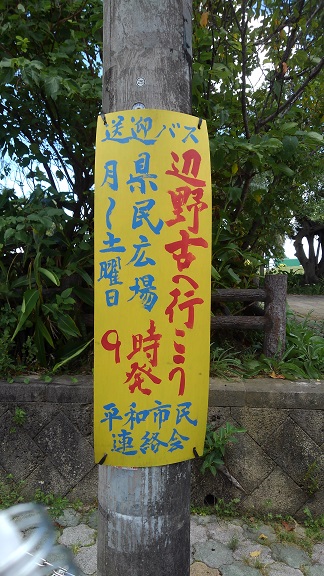 送迎バス
辺野古へ行こう
県民広場
9時発
月〜土曜日
平和市民
連絡会